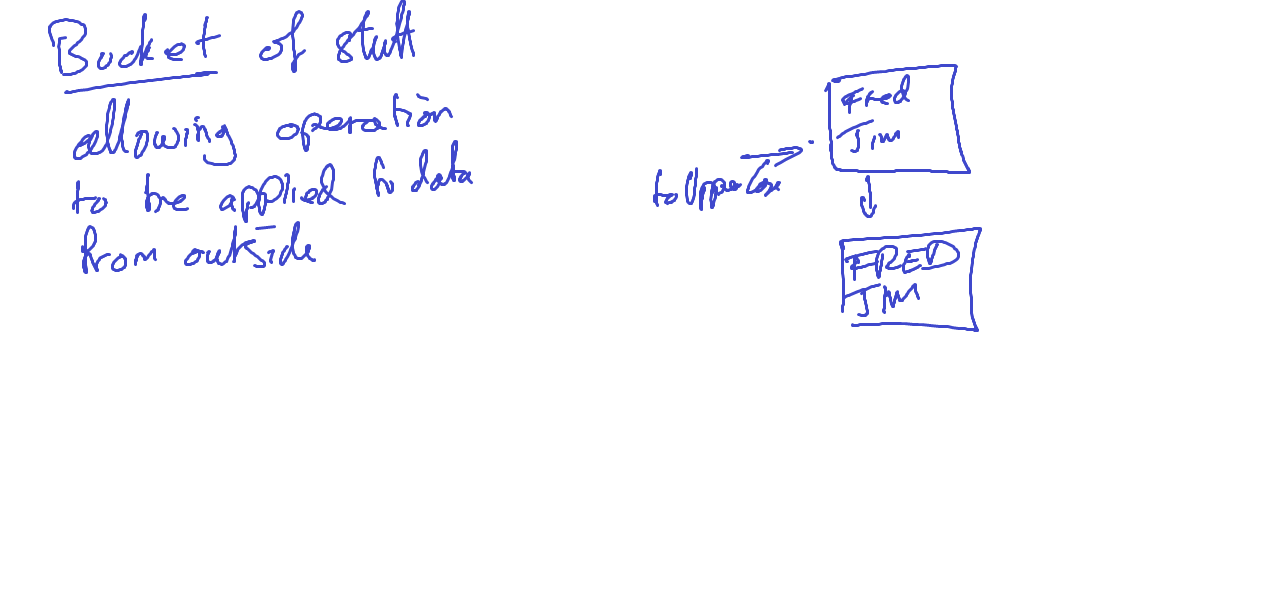 Bucket of stuff
allowing operation
to be applied to data
from outside
toUpperCase
Fred
Jim
FRED
JIM